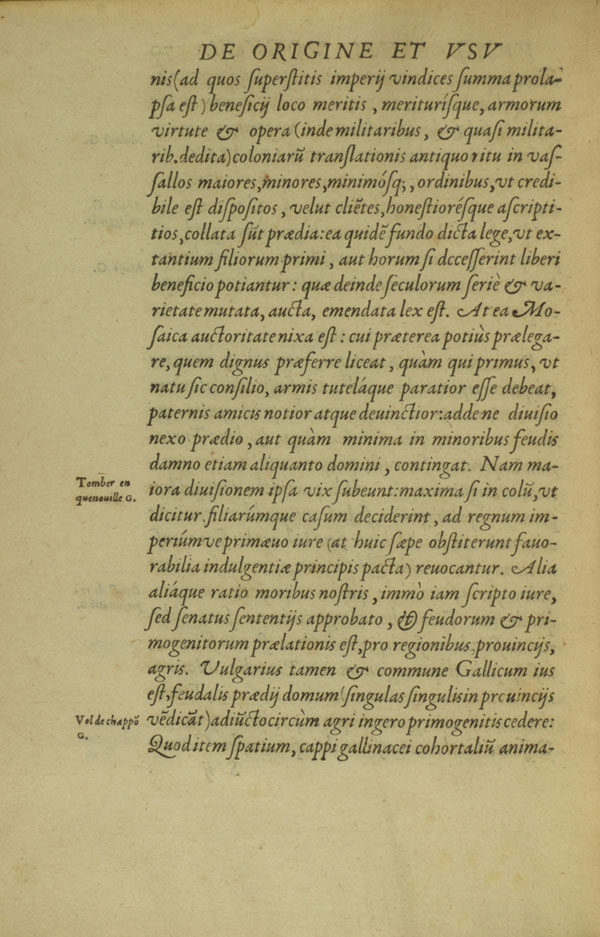 DE ORIGINE ET VSV
nis (ad quos superstitis imperij vindices summa prola-
psa est) beneficij loco meritis, meriturisque, armorum
virtute & opera (inde militaribus, & quasi milita-
rib. dedita) coloniarū translationis antiquo ritu in vas-
sallos maiores, minores, minimósq;, ordinibus, vt credi-
bile est dispositos, velut cliētes, honestiorésque ascripti-
tios, collata sūt prædia: ea quidē fundo dicta lege, vt ex-
tantium filiorum primi, aut horum si dccesserint liberi
beneficio potiantur: quæ deinde seculorum seriè & va-
rietate mutata, aucta, emendata lex est. At ea Mo-
saica auctoritate nixa est: cui præterea potiùs prælega-
re, quem dignus præferre liceat, quàm qui primus, vt
natu sic consilio, armis tuteláque paratior esse debeat,
paternis amicis notior atque deuinctior: adde ne diuisio
nexo prædio, aut quàm minima in minoribus feudis
damno etiam aliquanto domini, contingat. Nam ma-
Tomber en
quenouille G.
iora diuisionem ipsa vix subeunt: maxima si in colū, vt
dicitur filiarúmque casum deciderint, ad regnum im-
periúmve primæuo iure (at huic sæpe obstiterunt fauo-
rabilia indulgentiæ principis pacta) reuocantur. Alia
aliáque ratio moribus nostris, immò iam scripto iure,
sed senatus sententijs approbato, & feudorum & pri-
mogenitorum prælationis est, pro regionibus, prouincijs,
agris. Vulgarius tamen & commune Gallicum ius
est, feudalis prædij domum (singulas singulis in prcuincijs
Vol de chappō
G.
vēdicāt) adiūcto circùm agri ingero primogenitis cedere:
Quod item spatium, cappi gallinacei cohortaliū anima-